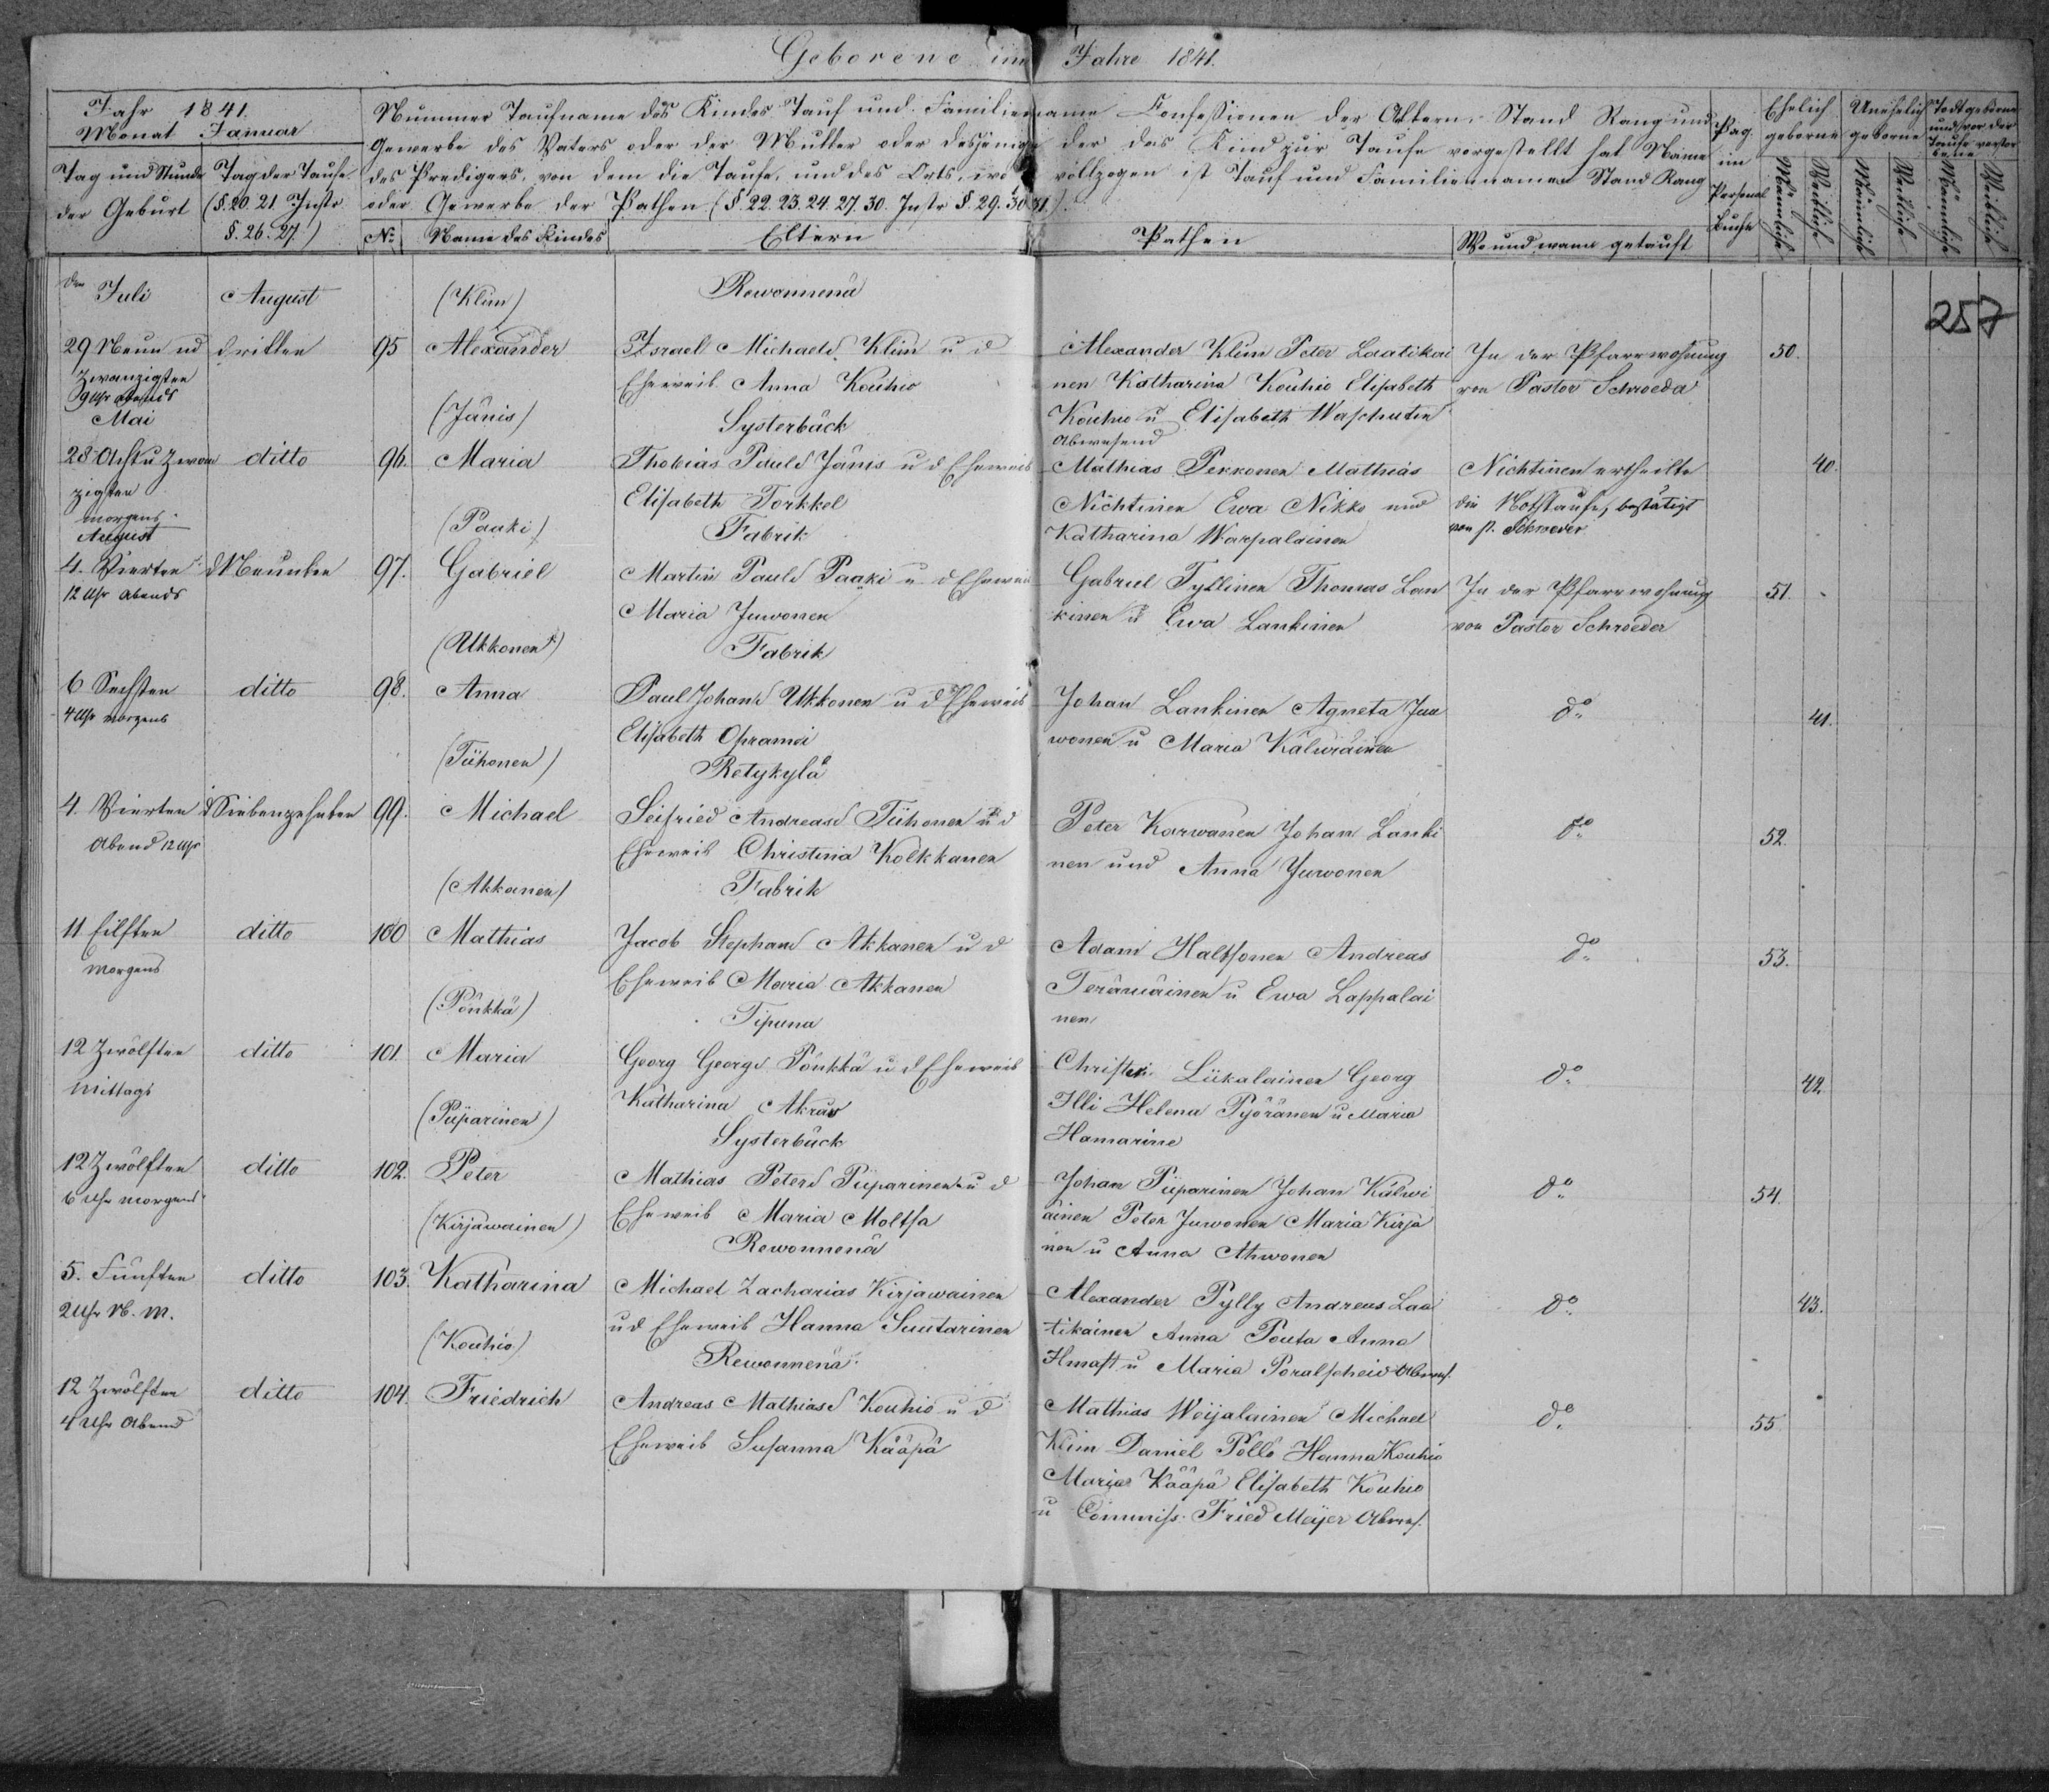 Geborene im Jahre 1841.
Jahr 1841.
Monat Januar
Tag und Stunde der Geburt
Tag der Taufe (§. 20. 21. Instr. §. 26. 27.)
Nummer Taufname des Kindes Tauf und Familienname Confessionen der Altern. Stand Rang und
Gewerbe des Vaters oder der Mutter oder desjenigen der das Kind zur Taufe vorgestellt hat Name
des Predigers, von dem die Taufe, und des Orts, wo vollzogen ist Tauf und Familiennamen Stand Rang
oder Gewerbe der Pathen (§. 22. 23. 24. 27. 30. Instr. §. 29. 30. 31.)
No. Name des Kindes Eltern Pathen Wo und wann getauft
Pag. im Personal Buche
Ehelich geborne Unehelich geborne Todtgeborne und vor der Taufe verstorbene
Männliche Weibliche Männliche Weibliche Männliche Weibliche
257
den Juli August (Klim) Rewonnenä
29 Neun ud dritten 95 Alexander Israel Michaels Klim u d Alexander Klim Peter Laatikai In der Pfarrwohnung 50.
zwanzigsten Eheweib Anna Kouhio nen Katharina Kouhio Elisabeth von Pastor Schroeder
9 Uhr abends
Mai (Jänis) Systerbäck Kouhio u Elisabeth Waschuten
abwesend
28 Acht u zwan ditto 96. Maria Thobias Pauls Jänis u d Eheweib Mathias Pekkonen Matthias Nichtinen ertheilte 40.
zigsten Elisabeth Torkkel Nichtinen Ewa Nikko und die Nothtaufe, bestätigt
morgens
August (Paaki) Fabrik Katharina Warpalainen von p. Schroeder
4. Vierten d Neunten 97. Gabriel Martin Pauls Paaki u d Eheweib Gabriel Tyllinen Thomas Lan In der Pfarrwohnung 51.
12 Uhr abends Maria Juwonen kinen u Ewa Lankinen von Pastor Schroeder
(Ukkonen) Fabrik
6 Sechsten ditto 98. Anna Paul Johans Ukkonen u d Eheweib Johan Lankinen Agneta Juu do 41.
4 Uhr morgens Elisabeth wonen u Maria Kälwiäinen
(Tiihonen) Retykylä
4. Vierten d Siebenzehnten 99. Michael Seifried Andreas Tiihonen u d Peter Karwanen Johan Lanki do 52.
Abend 12 Uhr Eheweib Christina Kolkkanen nen und Anna Juwonen
(Akkanen) Fabrik
11 Eilften ditto 100 Mathias Jacob Stephans Akkanen u d Adam Haltsonen Andreas do 53.
morgens Eheweib Maria Akkanen Teräwäinen u Ewa Lappalai
(Pönkkä) Tipuna nen
12 Zwölften ditto 101. Maria Georg Georgs Pönkkä u d Eheweib Liikalainen Georg do 42.
Mittags Katharina Akras Illi Helena Pyöränen u Maria
(Piiparinen) Systerbäck Hamarine
12 Zwölften ditto 102. Peter Mathias Peters Piiparinen u d Johan Piiparinen Johan Kälwi do 54.
6 Uhr morgens Eheweib Maria Moltsa äinen Peter Juwonen Maria Kirja
(Kirjawainen) Rewonnenä nen u Anna Ahwonen
5. Fünften ditto 103. Katharina Michael Zacharias Kirjawainen Alexander Pylly Andreas Laa do 43.
2 Uhr N. M. u d Eheweib Hanna Suutarinen tikainen Anna Pouta Anna
(Kouhio) Rewonnenä u Maria abwes.
12 Zwölften ditto 104. Friedrich Andreas Mathias Kouhio u d Mathias Weijalainen Michael do 55.
4 Uhr Abend Eheweib Susanna Kääpä Klim Daniel Pöllö Hanna Kouhio
Maria Kääpä Elisabeth Kouhio
u Commiss. Fried Meijer abwes.